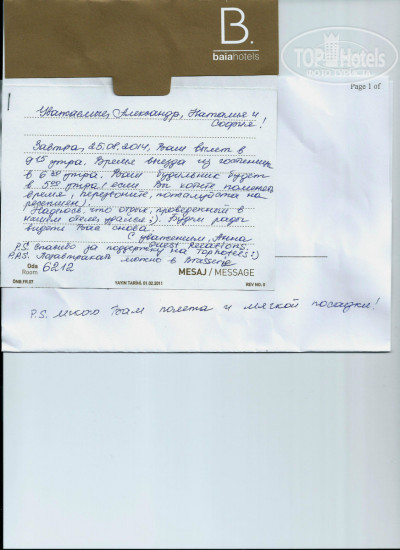 B.
baiahotels
TOPHotels
Page 1 of
Уважаемые, Александр, Наталья и
София!
Завтра, 25.08.2014, Ваш вылет в
9 утра. Время выезда из гостиницы
в 6 утра. Ваш будильник будет
в 5⁰⁰ утра (если Вы хотите поменять
время, перезвоните, пожалуйста на
резепшен).
Надеюсь, что отдых, проведенный в
нашем отеле, удался :). Будем рады
видеть Вас снова.
С уважением, Анна
Guest Relations.
P.S. спасибо за поддержку на TopHotels :)
P.P.S. Позавтракать можно в Brasserie
Oda
Room 6212
MESAJ / MESSAGE
ÖNB.FR.07
YAYIN TARİHİ: 01.02.2011
REV NO.: 0
P.S. Вам полета и мягкой посадки!